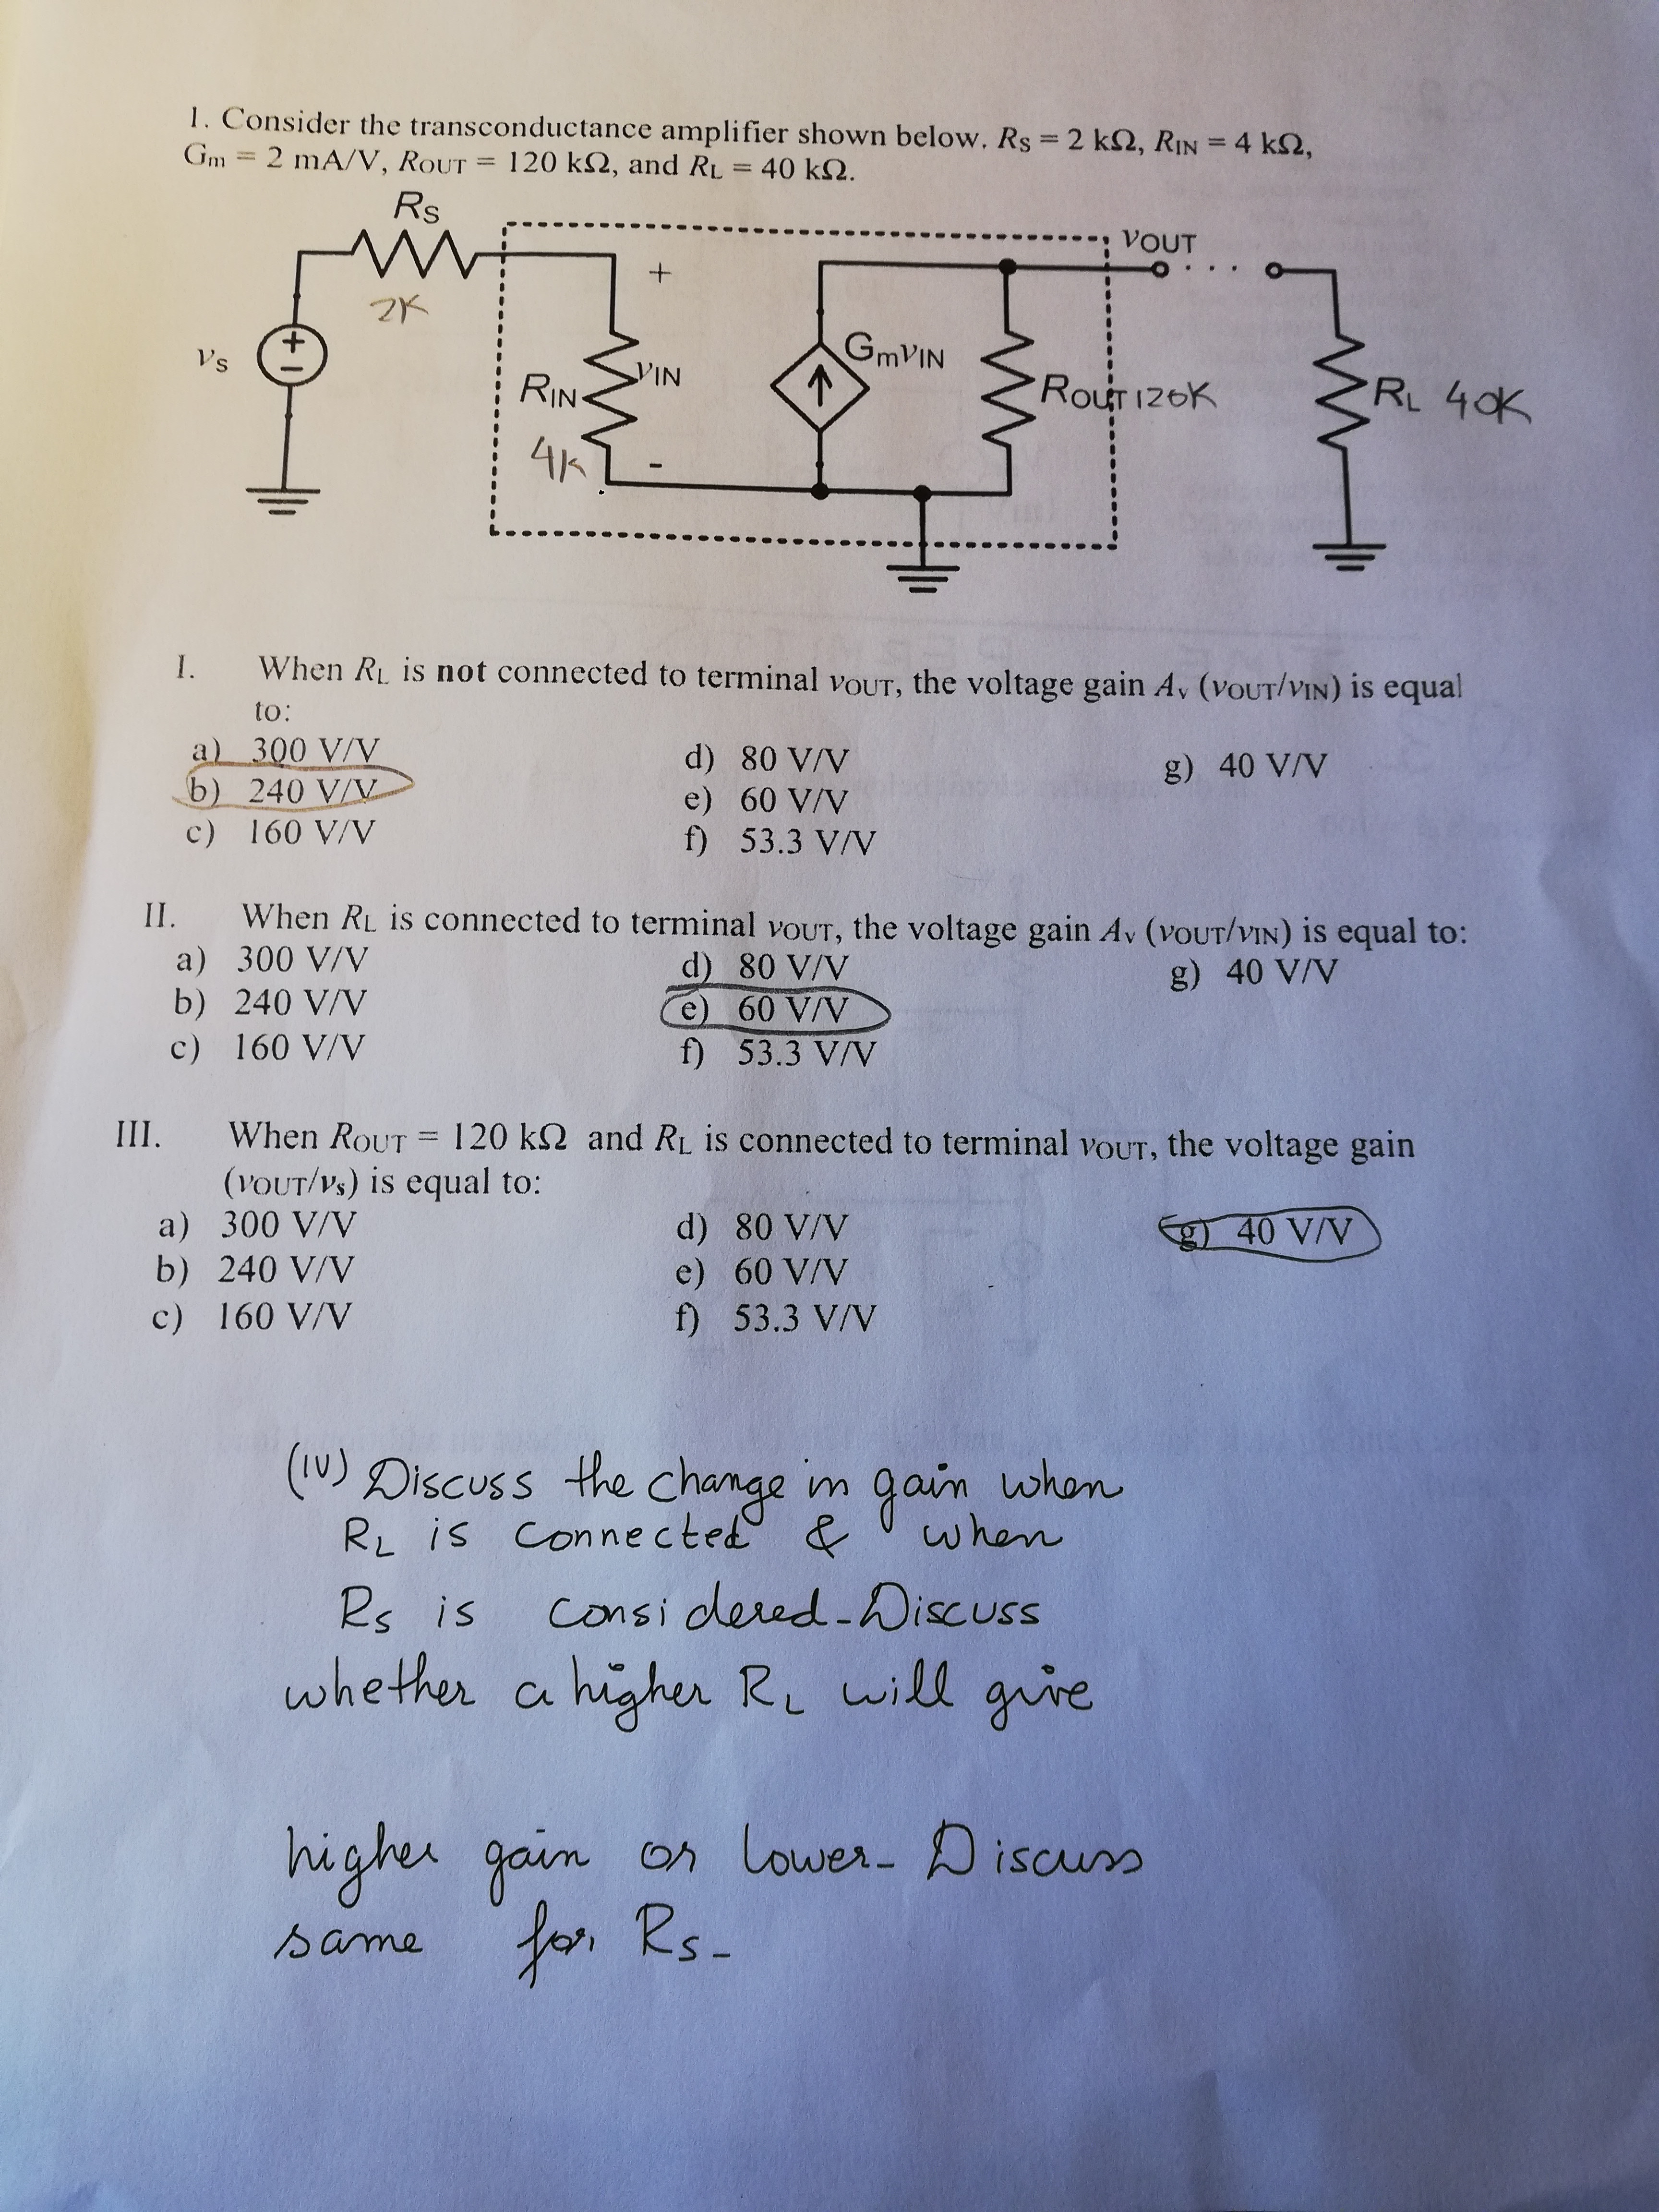 1. Consider the transconductance amplifier shown below. RS = 2 kΩ, RIN = 4 kΩ,
Gm = 2 mA/V, ROUT = 120 kΩ, and RL = 40 kΩ.
RS
2K
vS
+
−
RIN
4K
+
vIN
-
GmVIN
ROUT 120K
vOUT
RL 40K
I. When RL is not connected to terminal vOUT, the voltage gain Av (vOUT/vIN) is equal
to:
a) 300 V/V
b) 240 V/V
c) 160 V/V
d) 80 V/V
e) 60 V/V
f) 53.3 V/V
g) 40 V/V
II. When RL is connected to terminal vOUT, the voltage gain Av (vOUT/vIN) is equal to:
a) 300 V/V
b) 240 V/V
c) 160 V/V
d) 80 V/V
e) 60 V/V
f) 53.3 V/V
g) 40 V/V
III. When ROUT = 120 kΩ and RL is connected to terminal vOUT, the voltage gain
(vOUT/vs) is equal to:
a) 300 V/V
b) 240 V/V
c) 160 V/V
d) 80 V/V
e) 60 V/V
f) 53.3 V/V
g) 40 V/V
(IV) Discuss the change in gain when
RL is connected & when
Rs is considered - Discuss
whether a higher RL will give
higher gain or lower - Discuss
same for Rs -